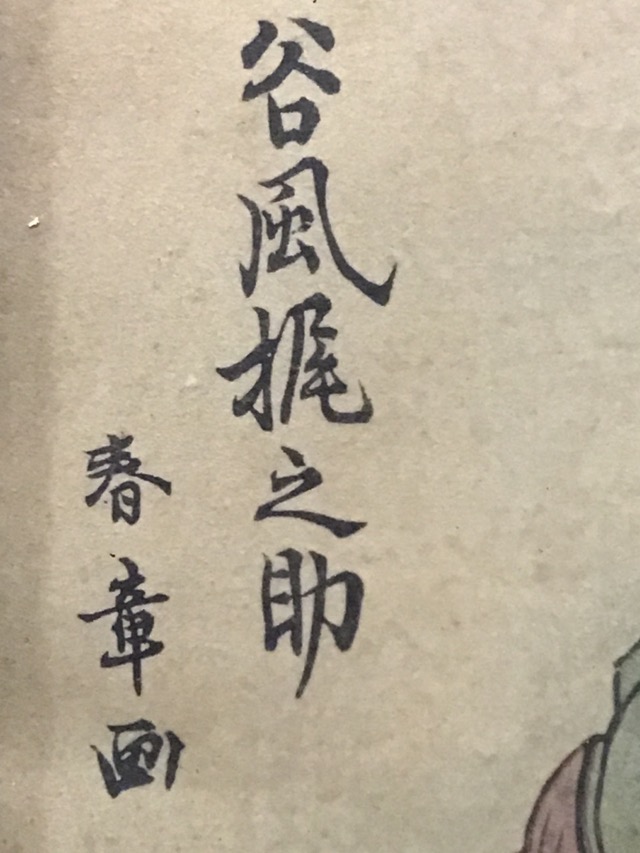 谷風梶之助
春章画